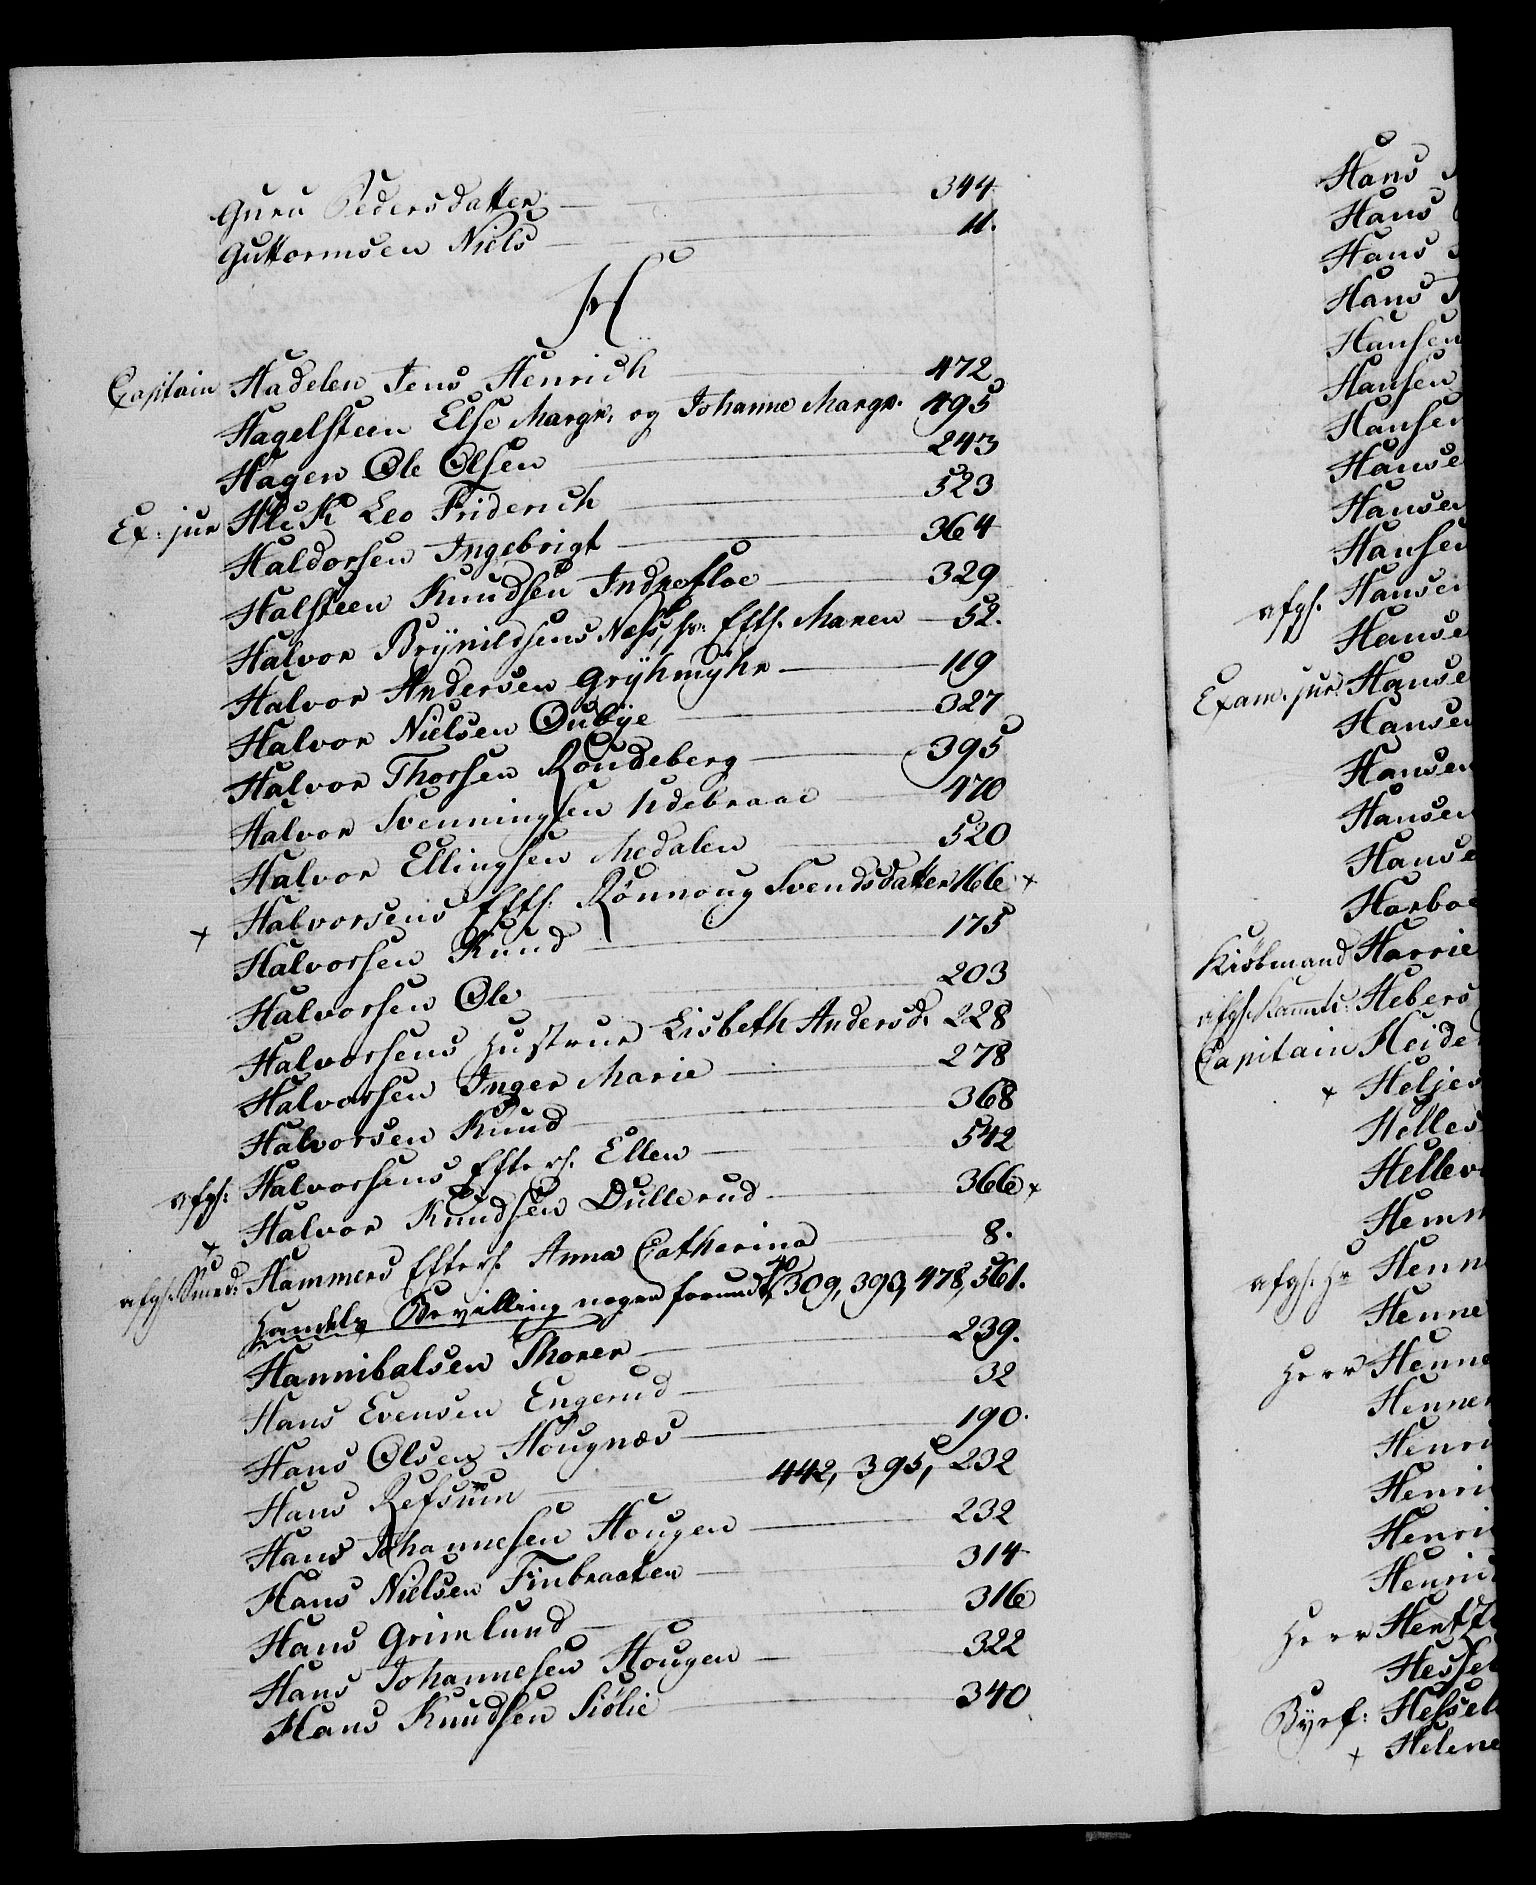 Guru Pedersdatter 344
Guttormsen Niels 11.
H
Captain Hadelen Jens Henrich 472
Hagelsteen Else Margr. og Johanne Margr. 495
Hagen Ole Olsen 243
Ex: jur Leo Friderich 523
Haldorsen Ingebrigt 364
Halsteen Knudsen Indrefloe 329
Halvor Brynildsens Næss, Eftf. Maren 52.
Halvor Andersen Gryhmyhr 119
Halvor Nielsen Oubye 327
Halvor Thorsen Roudeberg 395
Halvor Svenningsen Udebraae 470
Halvor Ellingsen Medalen 520
+ Halvorsens Eftf. Rönnoug Svendsdatter 166 +
Halvorsen Knud 175
Halvorsen Ole 203
Halvorsens Hustrue Lisbeth Andersd. 228
Halvorsen Inger Marie 278
Halvorsen Knud 368
afgl: Halvorsens Efterl. Ellen 542
+ Halvor Knudsen Dullerud 366 +
afgl. Smed: Hammers Efterl. Anna Catharina 8.
Handels Bevilling nogen forundt, 309, 393, 478, 561.
Hannibalsen Thorer 239.
Hans Evensen Engerud 32
Hans Olsen Hougnæs 190.
Hans Refsum 442, 395, 232
Hans Johannesen Hougen 232
Hans Nielsen Finbraaten 314
Hans Grimlund 316
Hans Johannesen Hougen 322
Hans Knudsen Siölie 340
Hans
Hans
Hans
Hans
Hansen
Hansen
Hansen
Hanse
Hansen
Hansen
afgl. Hansen
Hanse
Exam. jur. Hanse
Hansen
Hansen
Hansen
Hanse
Harboe
Kiöbmand Harrie
afgl. Hebers
Capitain Heide
+ Heljes
Helles
Hellev
Hemm
afgl. Hr Henn
Henne
Herr Henne
Hennen
Henri
Henri
Henri
Henric
Herr Hentz
Hessel
Byef: Hessel
+ Helene